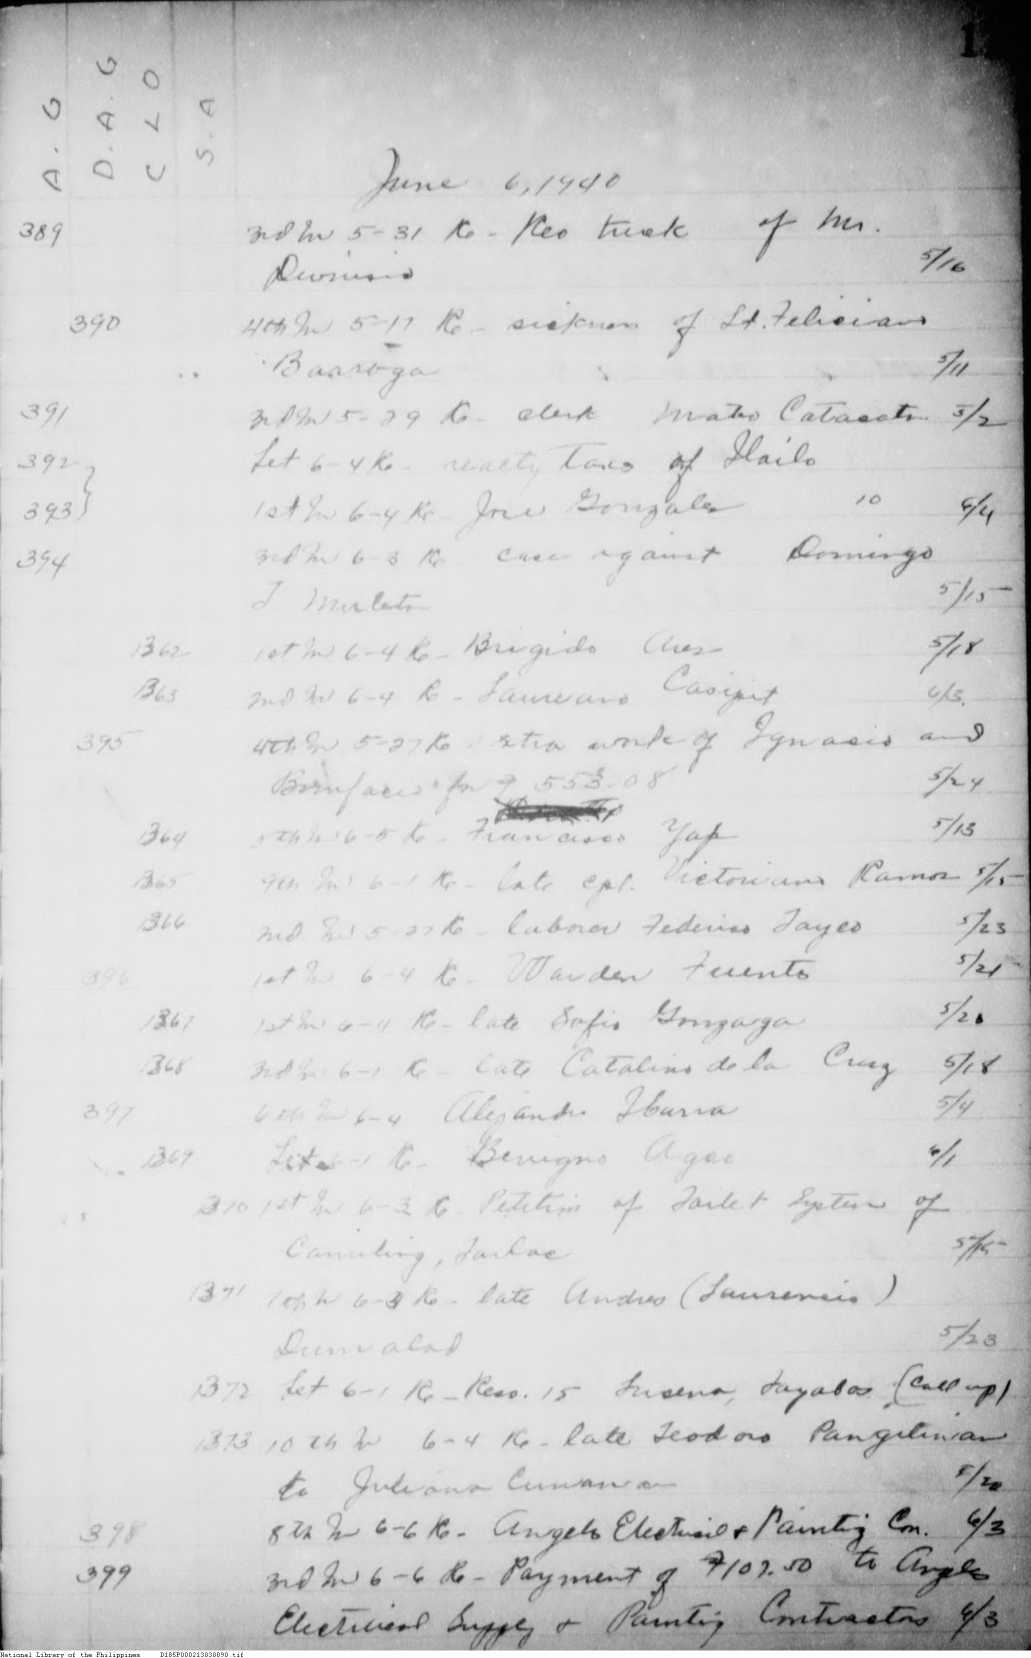 A.G D.A.G C L O S.A
June 6, 1940
389 3rd In 5-31 Re - Reo truck of Mr.
Dionisio 5/16
390 4th In 5-17 Re - sickness of Lt. Feliciano
Baaroga 5/11
391 3rd In 5-29 Re - clerk Mateo Catacata 5/2
392 Let 6-4 Re - realty taxes of Iloilo
393 1st In 6-4 Re - Jose Gonzales 10 6/4
394 3rd In 6-3 Re case against Domingo
T 5/15
1362 1st In 6-4 Re - Brigido Ares 5/18
1363 2nd In 6-4 Re - Laureano Casipit 6/3
395 4th In 5-27 Re extra work of Ignacio and
Bonifacio for ₱ 553.08 5/24
1364 5th In 6-5 Re - Francisco Yap 5/13
1365 9th In 6-1 Re - late cpl. Victoriano Ramos 5/15
1366 2nd In 5-27 Re - laborer Federico Tayco 5/23
396 1st In 6-4 Re - Warden Fuentes 5/21
1367 1st In 6-4 Re - late Sofio Gonzaga 5/20
1368 3rd In 6-1 Re - late Catalino de la Cruz 5/18
397 6th In 6-4 Alejandro Ibarra 5/4
1369 Let 6-1 Re - Benigno Agao 6/1
1370 1st In 6-3 Re - Petition of Toilet System of
Camiling, Tarlac 5/15
1371 6-3 Re - late Andres (Laurencio)
Dumalod 5/23
1372 Let 6-1 Re - Reso. 15 Lucena, Tayabas (Call up)
1373 10th In 6-4 Re - late Teodoro Pangilinan
to Juliana Cunanan 5/20
398 8th In 6-6 Re - Angeles Electrical & Painting Con. 6/3
399 3rd In 6-6 Re - Payment of ₱107.50 to Angeles
Electrical Supply & Painting Contractors 6/3
National Library of the Philippines D185P000213030890.tif